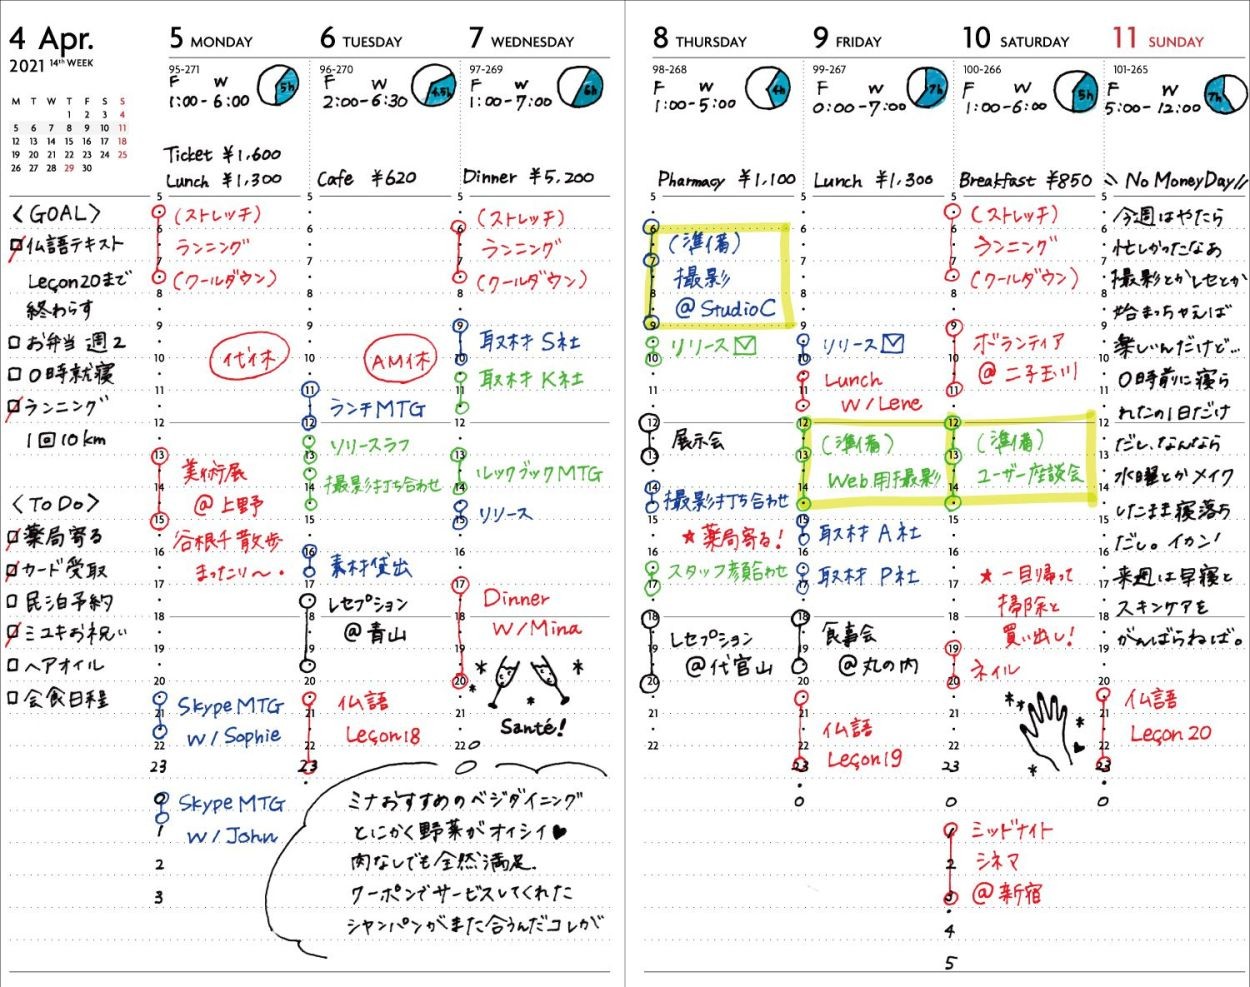 4 Apr.
2021 14th WEEK
M T W T F S S
1 2 3 4
5 6 7 8 9 10 11
12 13 14 15 16 17 18
19 20 21 22 23 24 25
26 27 28 29 30
<GOAL>
仏語テキスト
Leçon20まで
終わらす
お弁当 週2
0時就寝
ランニング
1回10km
<To Do>
薬局寄る
カード受取
民泊予約
ミユキお祝い
ヘアオイル
会食日程
5 MONDAY
95-271
F W
1:00-6:00
5h
Ticket ¥1,600
Lunch ¥1,300
(ストレッチ)
ランニング
(クールダウン)
代休
美術展
@上野
谷根千散歩
まったり〜・
Skype MTG
w/Sophie
Skype MTG
w/John
6 TUESDAY
96-270
F W
2:00-6:30
4.5h
Cafe ¥620
AM休
ランチMTG
リリースラフ
撮影打ち合わせ
素材貸出
レセプション
@青山
仏語
Leçon18
7 WEDNESDAY
97-269
F W
1:00-7:00
6h
Dinner ¥5,200
(ストレッチ)
ランニング
(クールダウン)
取材 S社
取材 K社
ルックブックMTG
リリース
Dinner
w/Mina
Santé!
ミナおすすめのベジダイニング
とにかく野菜がオイシイ♥
肉なしでも全然満足.
クーポンでサービスしてくれた
シャンパンがまた合うんだコレが
8 THURSDAY
98-268
F W
1:00-5:00
4h
Pharmacy ¥1,100
(準備)
撮影
@StudioC
リリース
展示会
撮影打ち合わせ
★薬局寄る!
スタッフ顔合わせ
レセプション
@代官山
9 FRIDAY
99-267
F W
0:00-7:00
7h
Lunch ¥1,300
リリース
Lunch
w/Lene
(準備)
Web用撮影
取材 A社
取材 P社
食事会
@丸の内
仏語
Leçon19
10 SATURDAY
100-266
F W
1:00-6:00
5h
Breakfast ¥850
(ストレッチ)
ランニング
(クールダウン)
ボランティア
@二子玉川
(準備)
ユーザー座談会
★一旦帰って
掃除と
買い出し!
ネイル
ミッドナイト
シネマ
@新宿
11 SUNDAY
101-265
F W
5:00-12:00
7h
\\ No MoneyDay //
今週はやたら
忙しかったなあ
撮影とかレセとか
始まっちゃえば
楽しいんだけど…
0時前に寝ら
れたの1日だけ
だし、なんなら
水曜とかメイク
したまま寝落ち
だし。イカン!
来週は早寝と
スキンケアを
がんばらねば。
仏語
Leçon 20